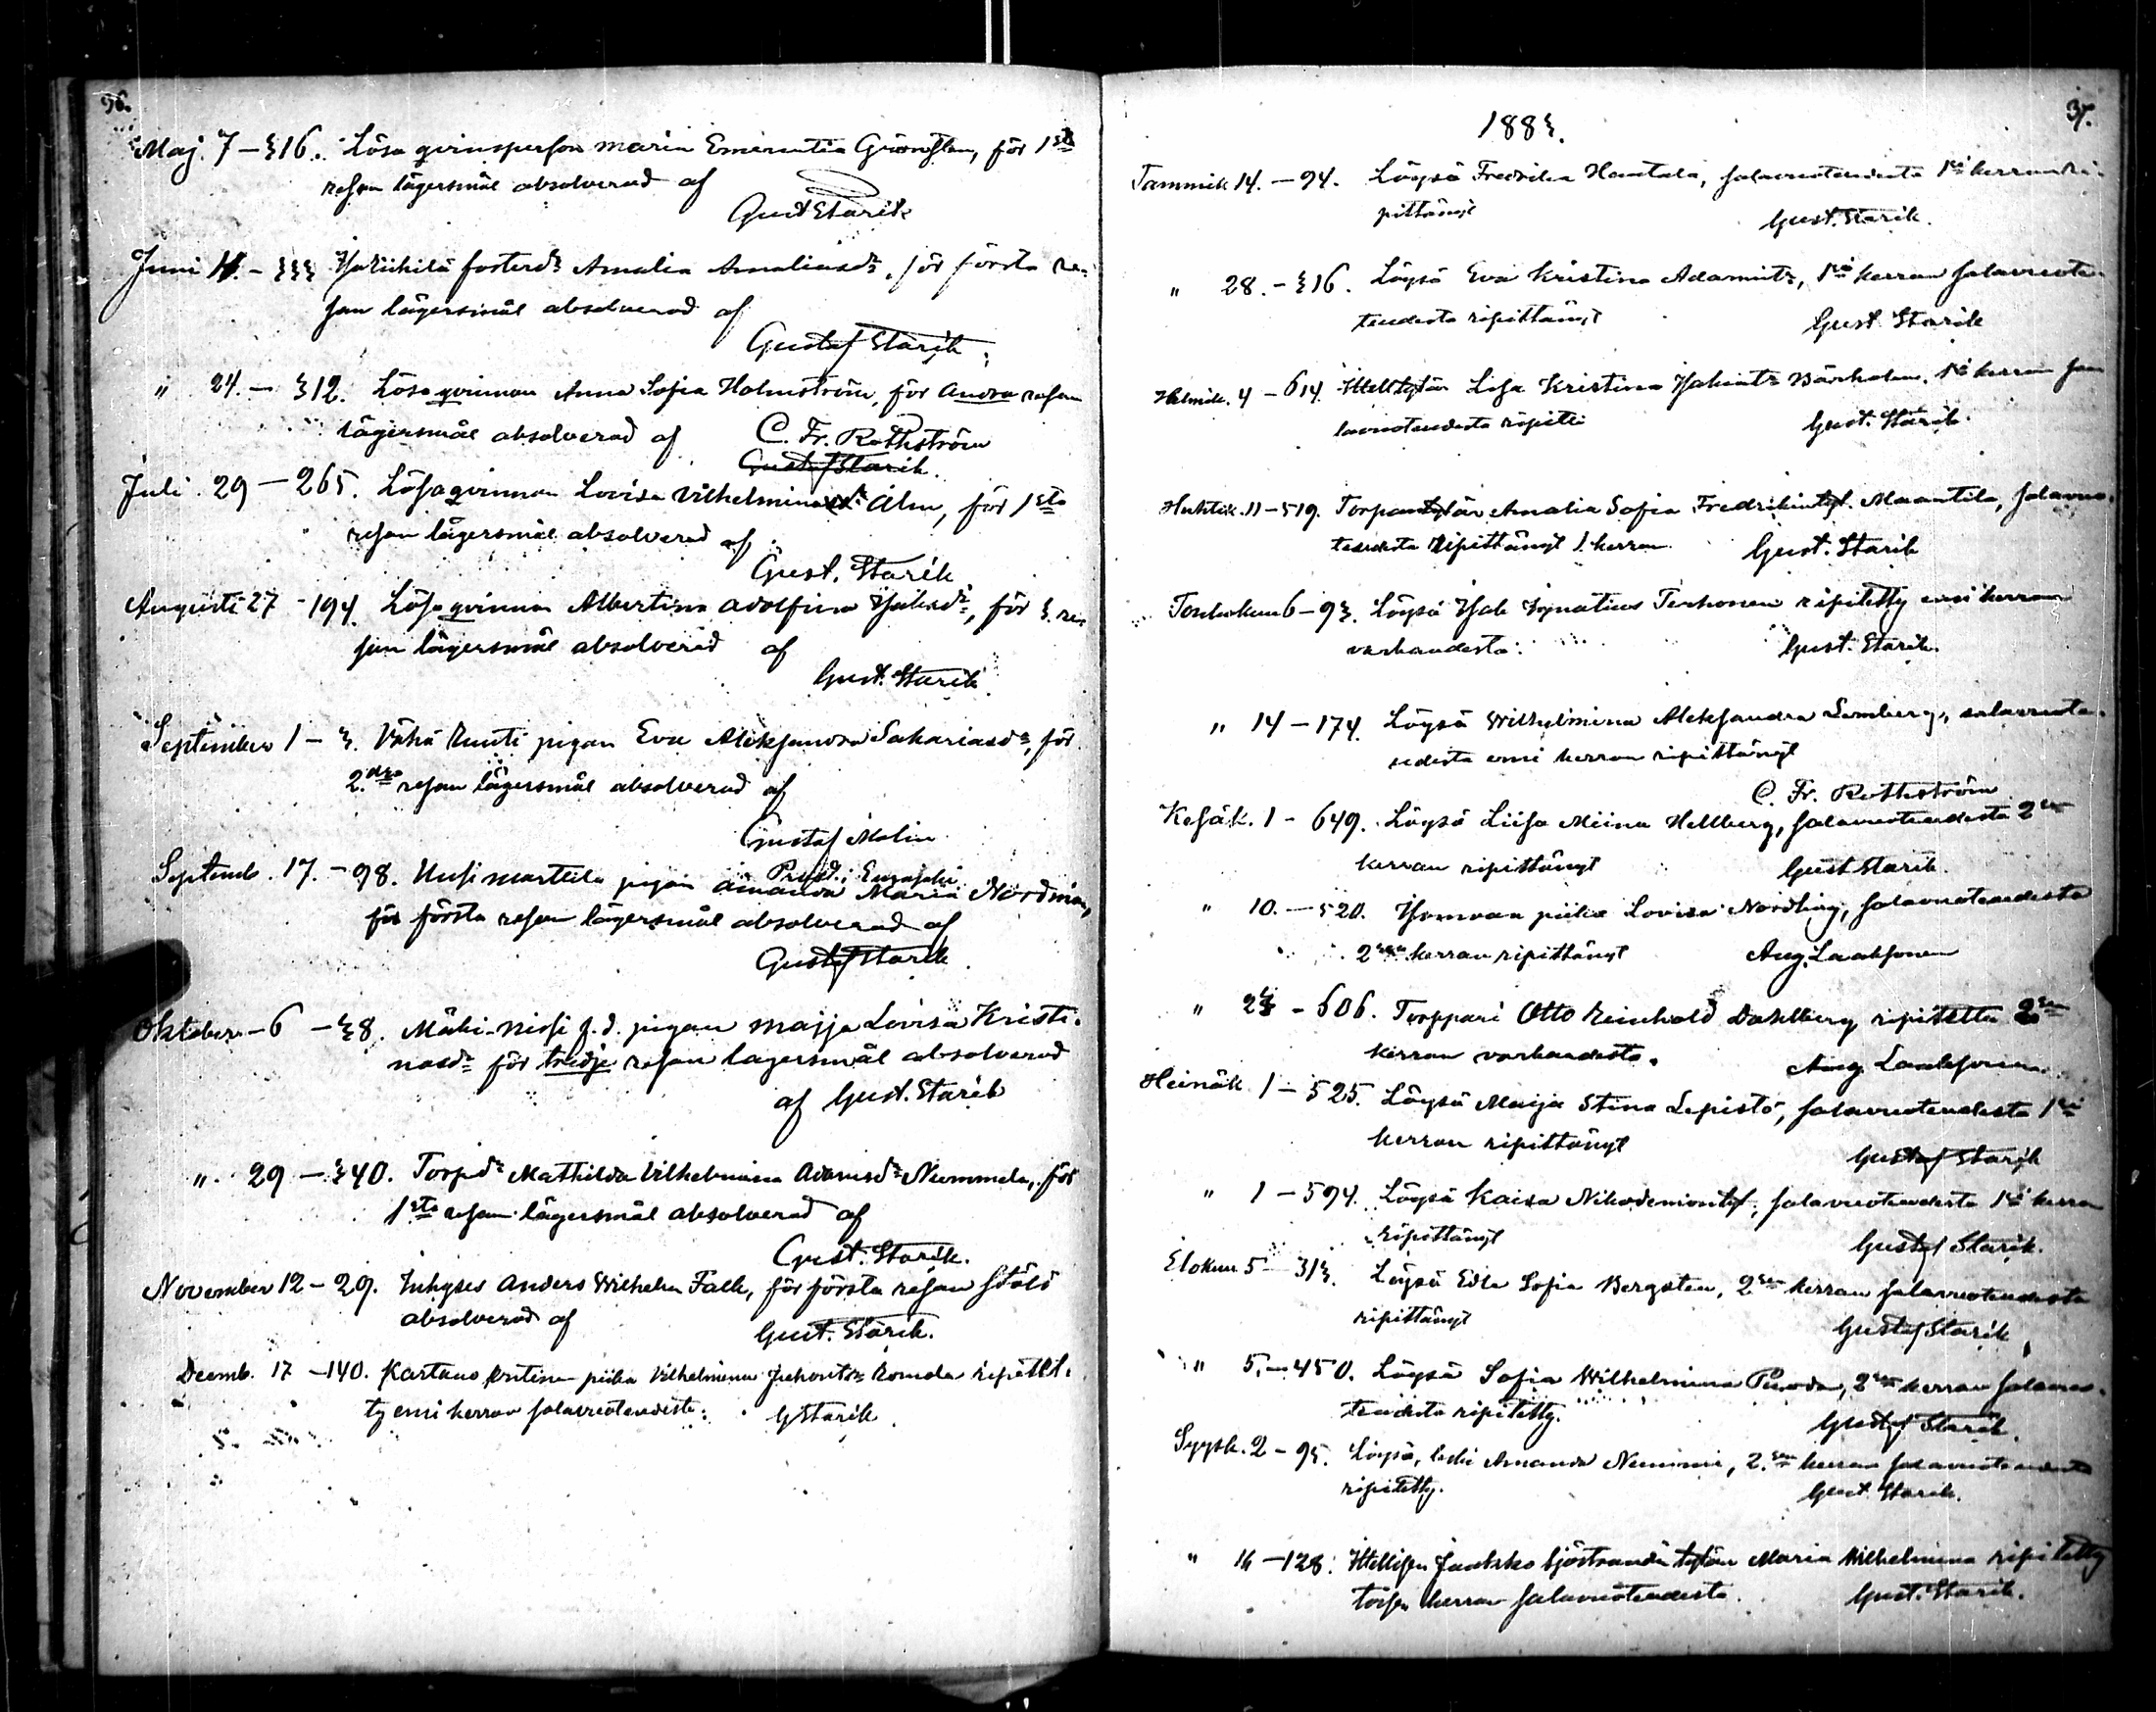 36.
Maj. 7 – 316. Lösa qvinsperson Maria Emerentia Grönsten, för 1sta
resan lägersmål absolverad af
Gust Starik
Juni 11. – 333 Yli Iisihilä fosterdr Amalia Amaliasdr, för första re-
san lägersmål absolverad af
Gustaf Starik.
" 24. – 312. Lösa qvinnan Anna Sofia Holmström, för andra resan
lägersmål absolverad af C. Fr. Rothström
Gustaf Starik.
Juli. 29 – 265. Lösa qvinnan Lovisa Vilhelmina Alm, för 1sta
resan lägersmål absolverad af
Gust. Starik
Augusti 27 – 194. Lösa qvinnan Albertina Adolfina Isaksdr, för 3. re-
san lägersmål absolverad af
Gust. Starik
September 1 – 3. Vähä Ruuti pigan Eva Aleksandra Sakariasdr, för
2.dra resan lägersmål absolverad af
Gustaf Malin
Prest. i Eurajoki
Septemb. 17. – 98. Uusimarttila pigan Amanda Maria Nordman,
för första resan lägersmål absolverad af
Gustaf Starik
Oktober – 6 – 38. Mäki-Nissi f.d. pigan Majja Lovisa Kristi-
nasdr för tredje resan lägersmål absolverad
af Gust. Starik
" 29 – 340. Torpdr Mathilda Vilhelmina Adamsdr Nummela, för
1sta resan lägersmål absolverad af
Gust. Starik.
November 12 – 29. Inhyses Anders Wilhelm Falk, för första resan stöld
absolverad af Gust. Starik.
Decemb. 17 – 140. Kartano piika Vilhelmiina Juhontr ripitet-
ty ensi kerran salavuoteudesta. G Starik.
37.
1883.
Tammik 14. – 94. Löysä Fredrika Hantala, salavuoteudesta 1si kerran ri-
pittänyt Gust. Starik.
" 28. – 316. Löysä Eva Kristina Adamintr, 1si kerran salavuote-
teudesta ripittänyt Gust. Starik
Helmik. 4 – 614. Ittelltytär Lisa Kristina Isakintr 1si kerran sa-
lavuoteudesta ripitti Gust. Starik.
Huhtik. 11 – 519. Torpantytär Amalia Sofia Fredrikintyt. Maantila, salavuo-
teudesta ripittänyt 1. kerran. Gust. Starik
Toukokuu 6 – 93. Löysä Isak Ignatius Terhonen ripitetty ensi kerran
varkaudesta. Gust. Starik.
" 14 – 174. Löysä Wilhelmina Aleksandra Lemberg, salavuote-
udesta ensi kerran ripittänyt
C. Fr. Rothström
Kesäk. 1 – 649. Löysä Liisa Miina Hellberg, salavuoteudesta 2sen
kerran ripittänyt Gust Starik.
" 10. – 520. piika Lovisa Nordling, salavuoteudesta
2sen kerran ripittänyt Aug. Laaksonen
" 24 – 606. Torppari Otto Reinhold Dahlberg ripitetty 2sen
kerran varkaudesta. Aug. Laaksonen
Heinäk. 1 – 525. Löysä Maija Stina Lepistö, salavuoteudesta 1si
kerran ripittänyt
Gustaf Starik
" 1 – 594. Löysä Kaisa Nikodemontyt, salavuoteudesta 1si kerran
ripittänyt Gustaf Starik.
Elokuu 5 – 313. Löysä Edla Sofia Bergsten, 2sen kerran salavuoteudesta
ripittänyt Gustaf Starik
" 5. – 450. Löysä Sofia Wilhelmina 2sen kerran salavuo-
teudesta ripitetty. Gustaf Starik.
Syysk. 2 – 95. Löysä, leski Amanda Nieminen, 2.sen kerran salavuoteudesta
ripitetty. Gust. Starik.
" 16 – 128. Itellisen Jaakko Sjöstrandin tytär Maria Wilhelmina ripitetty
toisen kerran salavuoteudesta. Gust. Starik.